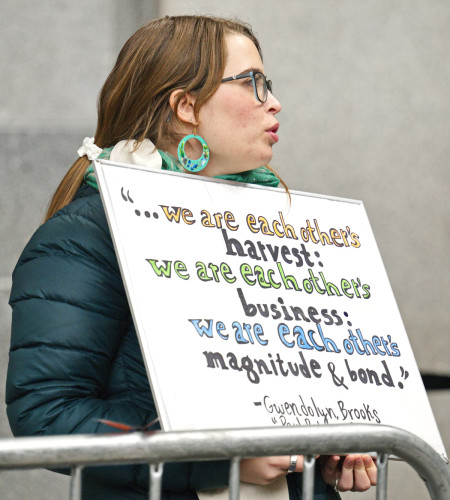 "...we are each other's
harvest:
we are each other's
business:
we are each other's
magnitude & bond."
-Gwendolyn Brooks